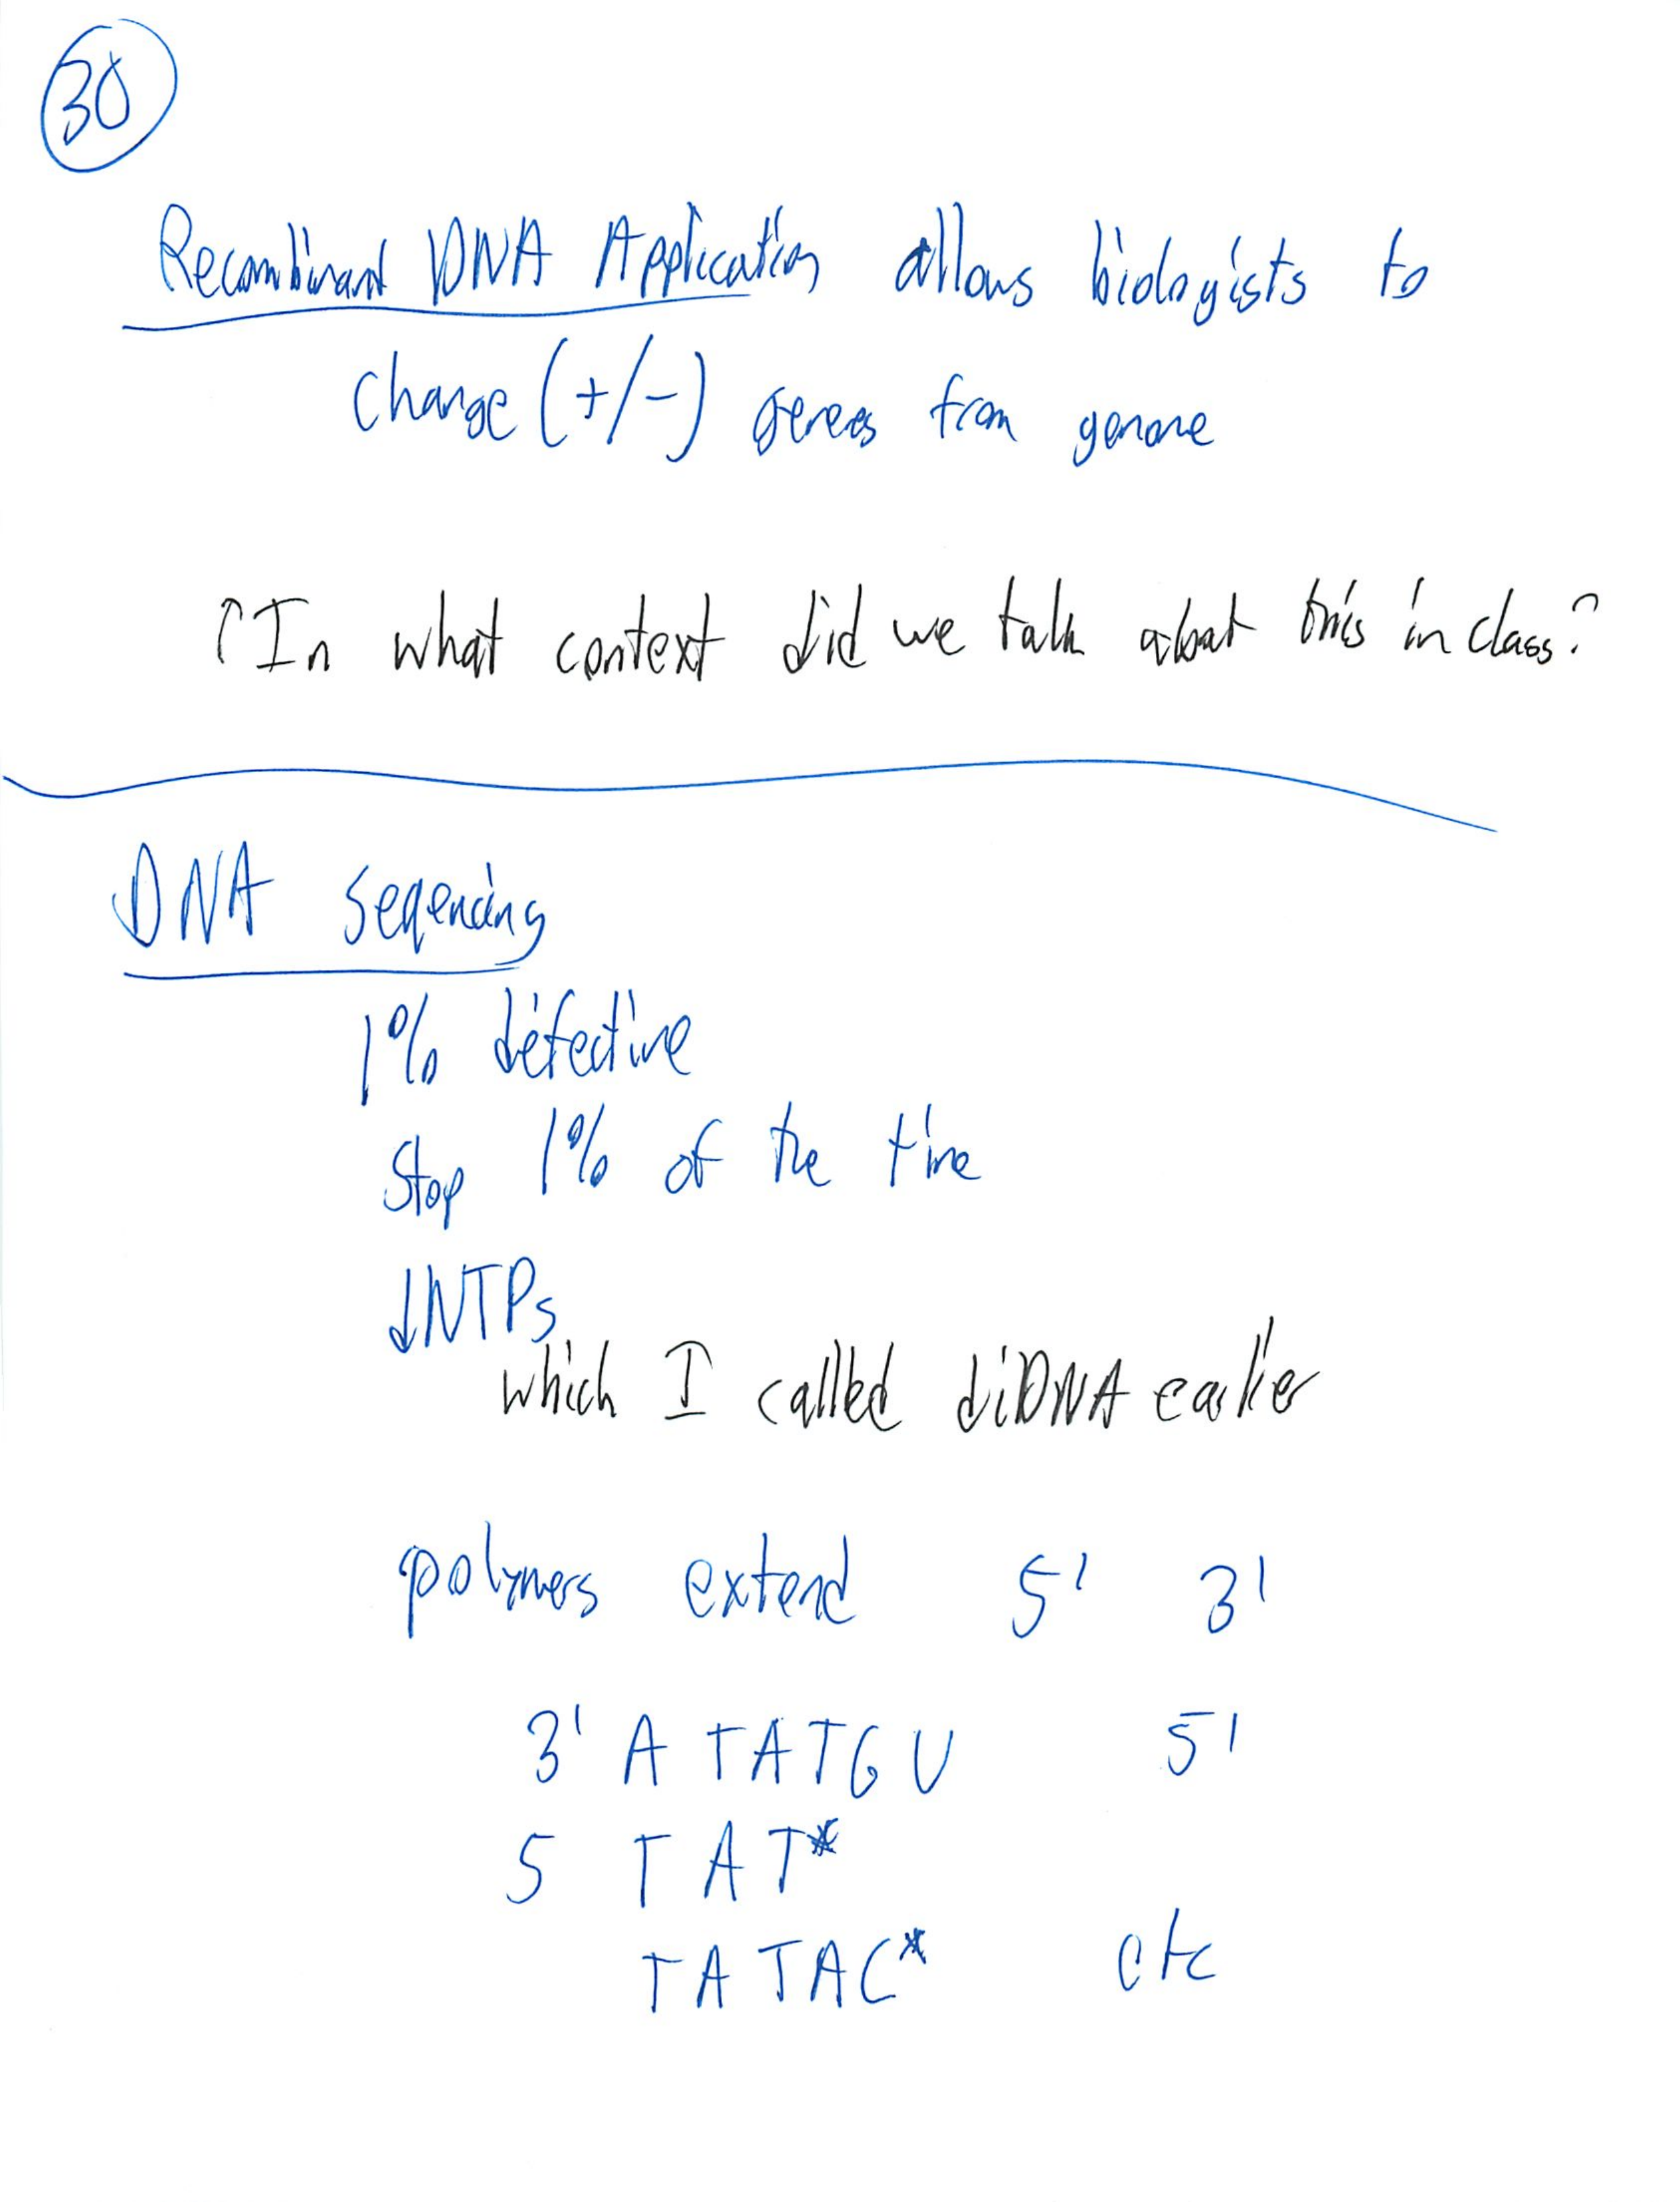 30
Recombinant DNA Application allows biologists to
change (+/-) genes from genome
? In what context did we talk about this in class?
DNA seqencing
1% defective
Stop 1% of the time
dNTPs
which I called diDNA earlier
polymers extend 5' 3'
3' A TATGU 5'
5 TAT*
TATAC* etc